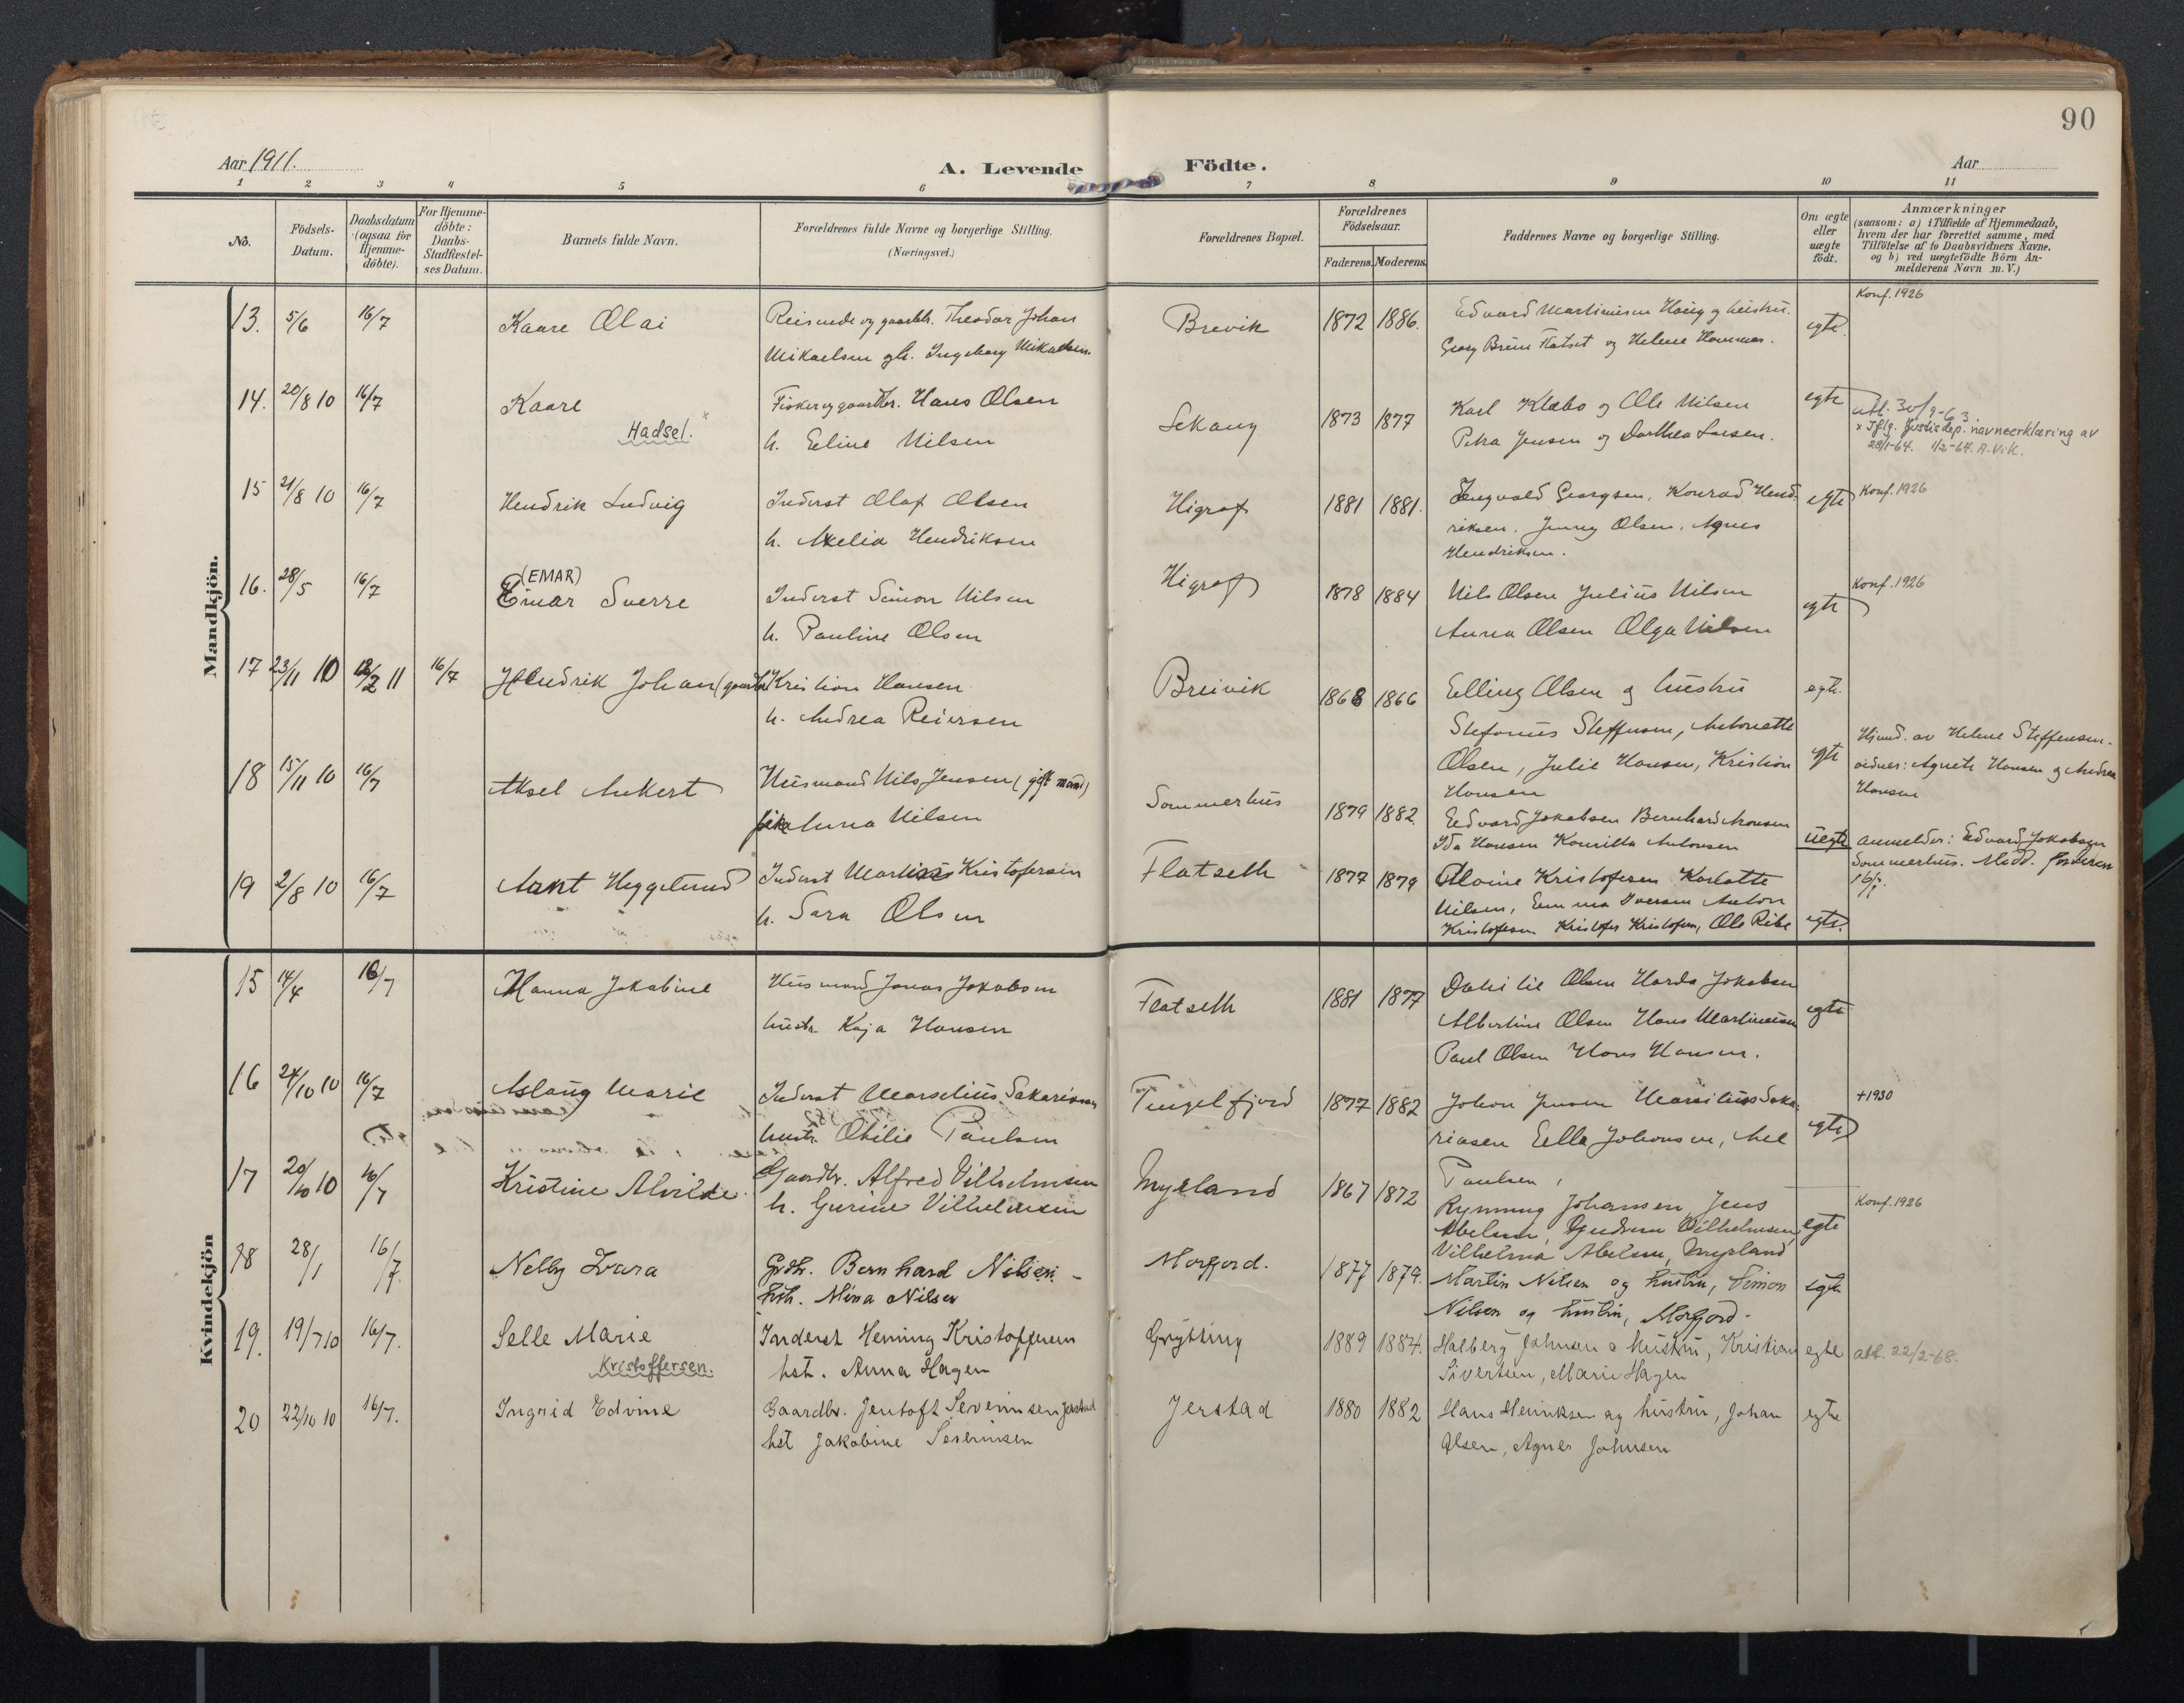 90
Aar 1911.
A. Levende Födte.
Aar
1 2 3 4 5 6 7 8 9 10 11
No.
Födsels-Datum.
Daabsdatum (ogsaa for Hjemme-döbte).
For Hjemme-döbte: Daabs-Stadfæstel-ses Datum.
Barnets fulde Navn.
Forældrenes fulde Navne og borgerlige Stilling.
(Næringsvei.)
Forældrenes Bopæl.
Forældrenes Födselsaar.
Faderens. Moderens.
Faddernes Navne og borgerlige Stilling.
Om ægte eller uægte födt.
Anmærkninger
(saasom: a) i Tilfælde af Hjemmedaab,
hvem der har forrettet samme, med
Tilföielse af to Daabsvidners Navne.
og b) ved uægtefödte Börn An-
melderens Navn m. V.)
Mandkjön.
13. 5/6 16/7 Kaare Olai Reisende og gaardbr. Theodor Johan Brevik 1872 1886. Edvard Martinusen Haug og hustru. egte. Konf. 1926
Mikaelsen og h. Ingeborg Mikaelsen. Georg Bruun Flatset og Helene Hammer.
14. 20/8 10 16/7 Kaare Fisker og gaardbr. Hans Olsen Sekang 1873 1877 Karl Klæbo og Ole Nilsen egte att. 30/9-63.
Hadsel. x h. Eeline Nilsen Petra Jensen og Dorthea Larsen. x Iflg. Justisdep. navneerklæring av
28/1-64. 1/2-64. A.Vik.
15 21/8 10 16/7 Hendrik Ludvig Inderst Olaf Olsen Higraf 1881 1881. Ingvald Georgsen, Konrad Hend- egte Konf. 1926
h. Amelia Hendriksen riksen. Jenny Olsen, Agnes
Hendriksen.
(EMAR)
16. 28/5 16/7 Emar Sverre Inderst Simon Nilsen Higraf 1878 1884 Nils Olsen Julius Nilsen egte Konf. 1926
h. Pauline Olsen Anna Olsen Olga Nilsen
17 23/11 10 12/2 11 16/7 Hendrik Johan (gaardbr. Kristian Hansen Breivik 1868 1866 Elling Olsen og hustru egte.
h. Andrea Reiersen Stefanus Steffensen, Antonette
Olsen, Julie Hansen, Kristian
Hansen
Hjmd. av Helene Steffensen.
vidner: Agnete Hansen og Andrea
Hansen
18 15/11 10 16/7 Aksel Ankert Husmand Nils Jensen (gift mand) Sommerhus 1879 1882. egte
pike Anna Nilsen Edvard Jokobsen Bernhard Aronsen
Ida Hansen Anlonsen uegte anmelder: Edvard Jokobsen
Sommerhus. Medd.
16/7.
19 2/8 10 16/7 Arant Heggelund Inderst Martinus Kristofersen Flatseth 1877 1879 Alvine Kristofersen Karlotte
h. Sara Olsen Nilsen, Emma Iversen Anton
Kristofersen Kristofer Kristofersen, Ole Ribe egte.
Kvindekjön
15 14/4 16/7 Hanna Jokabine Husmand Jonas Jokobsen Flatseth 1881 1877 Dolilie Olsen Harda Jokobsen egte
hustr. Kaja Hansen Albertine Olsen Hans Martinusen
Paul Olsen Hans Hansen.
16 24/10 10 16/7 Aslaug Marie Inderst Marselius Sakariasen Tingelfjord 1877 1882 Johan Jensen Marsilius Saka- egte +1930
hustr. Otilie Paulsen riasen Ella Johansen,
Paulsen,
17 20/10 10 16/7 Kristine Alvilde Gaardbr. Alfred Vilhelmsen Myrland 1867 1872 Rynning Johansen, Jens egte Konf. 1926
h. Gurine Vilhelmsen Abelsen, Gudrun Vilhelmsen
Vilhelma Abelsen, Myrland
18 28/1 16/7. Nelly Zvara Grdbr. Bernhard Nilsen. Morfjord. 1877 1879. Martin Nilsen og hustru, Simon egte
hstr. Mina Nilsen Nilsen og hustru, Morfjord.
19. 19/7 10 16/7. Selle Marie Inderst Heming Kristoffersen Grytting 1889 1884. Halberg Johnsen o hustru, Kristian egte att. 22/2-68.
Kristoffersen. hst. Anna Hagen Sivertsen, Marie Hagen
20 22/10 10 16/7. Ingrid Edvine Gaardbr. Jentoft Severinsen Jerstad Jerstad 1880 1882 Hans Henriksen og hustru, Johan egte
hst Jakobine Severinsen Olsen, Agnes Johnsen